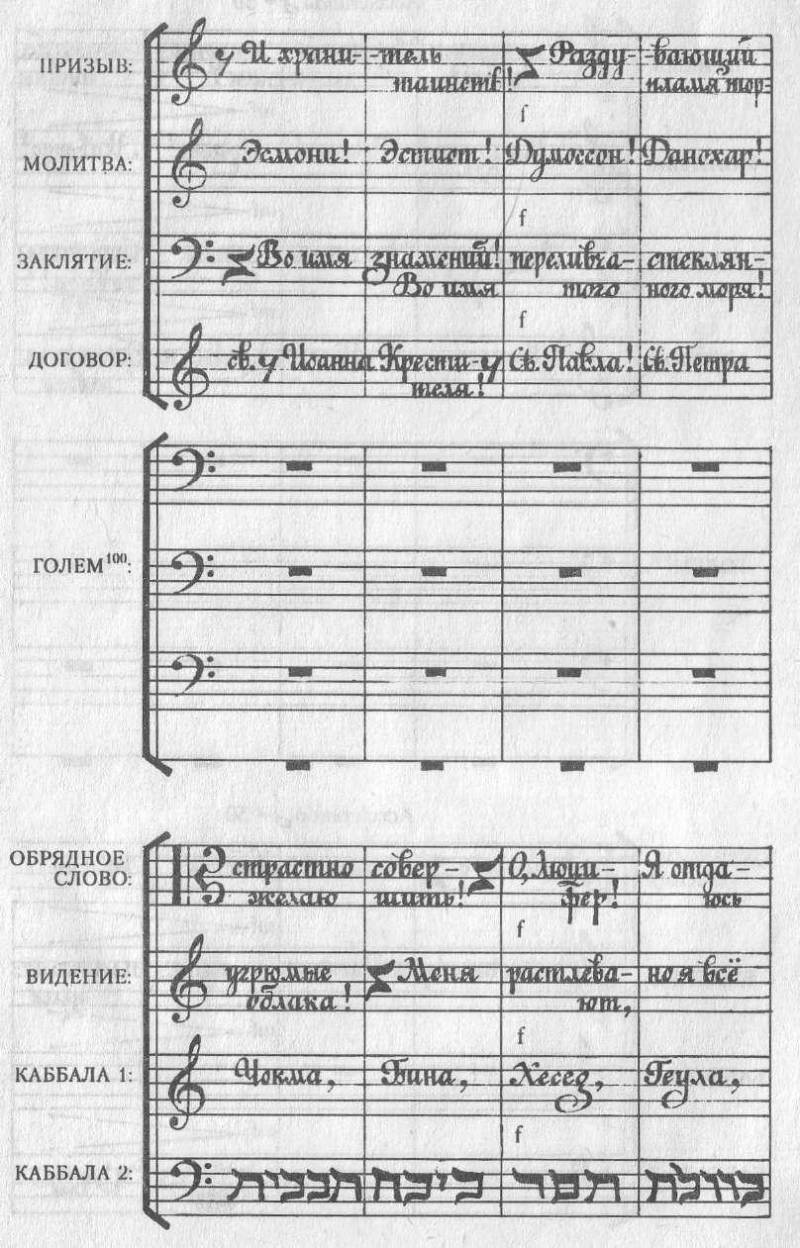 ПРИЗЫВ: И храни- -тель Разду- -вающий
таинств! пламя тор-
f
МОЛИТВА: Эсмони! Эстиот! Думоссон! Данохар!
f
ЗАКЛЯТИЕ: Во имя знамений! перелива- стеклян-
Во имя того ного моря!
f
ДОГОВОР: св. Иоанна Крести- Св. Павла! Св. Петра
теля!
ГОЛЕМ¹⁰⁰:
ОБРЯДНОЕ СЛОВО: страстно совер- О, Люци- Я отда-
желаю шить! фер! юсь
f
ВИДЕНИЕ: угрюмые Меня растлева- но я всё
облака! ют,
f
КАББАЛА 1: Чокма, Бина, Хесед, Геула,
f
КАББАЛА 2: